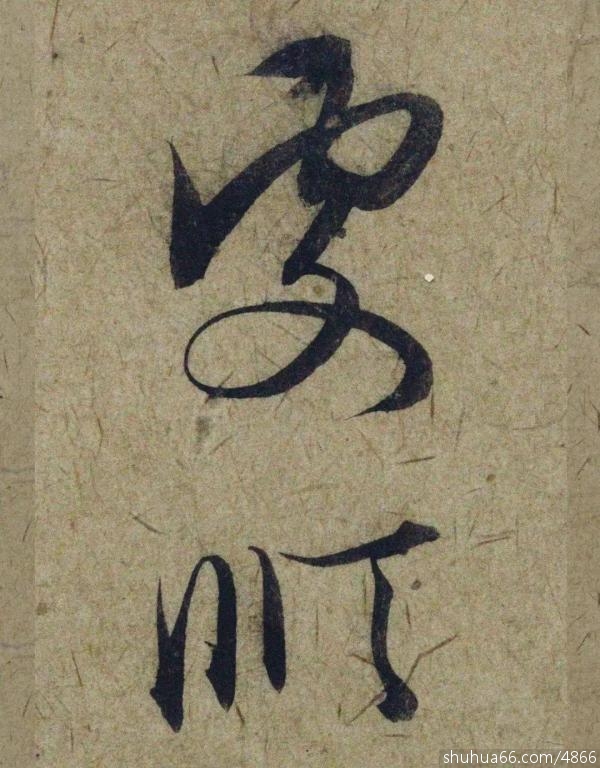 順
shuhua66.com/4866